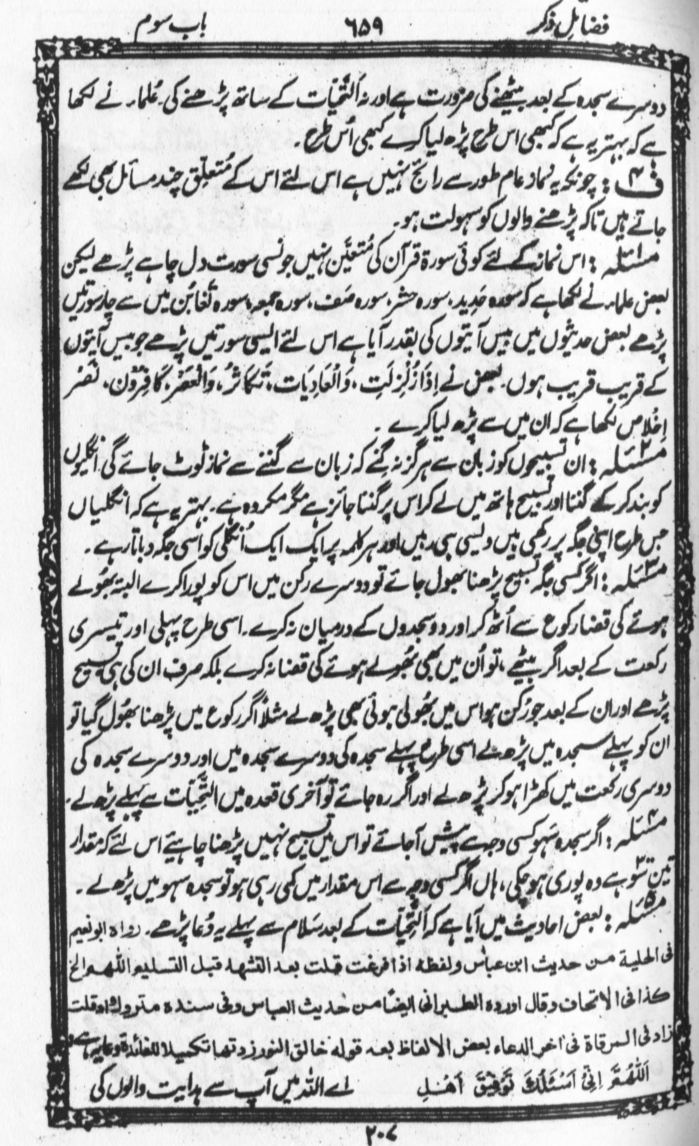 فضائل ذکر ۶۵۹ باب سوم
دوسرے سجدہ کے بعد بیٹھنے کی ضرورت ہے اور نہ اَلتَّحِیَّات کے ساتھ پڑھنے کی۔ عُلماء نے لکھا
ہے کہ بہتر یہ ہے کہ کبھی اس طرح پڑھ لیا کرے کبھی اُس طرح۔
ف۴: چونکہ یہ نماز عام طور سے رائج نہیں ہے اس لئے اس کے مُتعلِّق چند مسائل بھی لکھے
جاتے ہیں تاکہ پڑھنے والوں کو سہولت ہو۔
مسئلہ۱: اس نماز کے لئے کوئی سورۃ قرآن کی مُتعیَّن نہیں جونسی سورت دل چاہے پڑھے لیکن
بعض علماء نے لکھا ہے کہ سورہ حدید، سورہ حشر، سورہ صف، سورہ جمعہ، سورہ تغابُن میں سے چار سورتیں
پڑھے بعض حدیثوں میں بیس آیتوں کی بقدر آیا ہے اس لئے ایسی سورتیں پڑھے جو بیس آیتوں
کے قریب قریب ہوں۔ بعض نے اِذَا زُلْزِلَت، وَالْعَادِیَات، تَکاثُر، وَالْعَصْر، کَافِرُوْن، نَصْر
اِخْلَاص لکھا ہے کہ ان میں سے پڑھ لیا کرے۔
مسئلہ۲: ان تسبیحوں کو زبان سے ہرگز نہ گِنے کہ زبان سے گننے سے نماز ٹوٹ جائے گی اُنگلیوں
کو بند کر کے گننا اور تسبیح ہاتھ میں لے کر اس پر گننا جائز ہے مگر مکروہ ہے۔ بہتر یہ ہے کہ اُنگلیاں
جس طرح اپنی جگہ پر رکھی ہیں ویسی ہی رہیں اور ہر کلمہ پر ایک ایک اُنگلی کو اسی جگہ دباتا رہے۔
مسئلہ۳: اگر کسی جگہ تسبیح پڑھنا بھول جائے تو دوسرے رکن میں اس کو پورا کرے البتہ بھُولے
ہوئے کی قضا رکوع سے اُٹھ کر اور دو سجدوں کے درمیان نہ کرے۔ اسی طرح پہلی اور تیسری
رکعت کے بعد اگر بیٹھے، تو اُن میں بھی بھُولے ہوئے کی قضا نہ کرے بلکہ صرف ان کی ہی تسبیح
پڑھے اور ان کے بعد جو رکن ہو اس میں بھُولی ہوئی بھی پڑھ لے مثلاً اگر رکوع میں پڑھنا بھُول گیا تو
ان کو پہلے سجدہ میں پڑھ لے اسی طرح پہلے سجدہ کی دوسرے سجدہ میں اور دوسرے سجدہ کی
دوسری رکعت میں کھڑا ہو کر پڑھ لے اور اگر رہ جائے تو آخری قعدہ میں اَلتَّحِیَّات سے پہلے پڑھ لے۔
مسئلہ۴: اگر سجدہ سَہو کسی وجہ سے پیش آجائے تو اس میں تسبیح نہیں پڑھنا چاہیئے اس لئے کہ مقدار
تین سَو ہے وہ پوری ہوچکی، ہاں اگر کسی وجہ سے اس مقدار میں کمی رہی ہو تو سجدہ سہو میں پڑھ لے۔
مسئلہ۵: بعض احادیث میں آیا ہے کہ اَلتَّحِیَّات کے بعد سَلام سے پہلے یہ دُعا پڑھے۔ رواہ ابونعیم
فی الحلیة من حدیث ابن عباس ولفظہ اذا فرغت قلت بعد التشھد قبل التسلیم اللھم الخ
کذا فی الاتحاف وقال اوردہ الطبرانی ایضا من حدیث العباس وفی سندہ متروك اھ قلت
زاد فی المرقاة فی اخر الدعاء بعض الالفاظ بعد قولہ خالق النور زدتھا تکمیلا للفائدة دعا یہ ہے
اَللّٰھُمَّ اِنِّیْ اَسْئَلُكَ تَوْفِیْقَ اَھْلِ اے اللہ میں آپ سے ہدایت والوں کی
۲۰۷